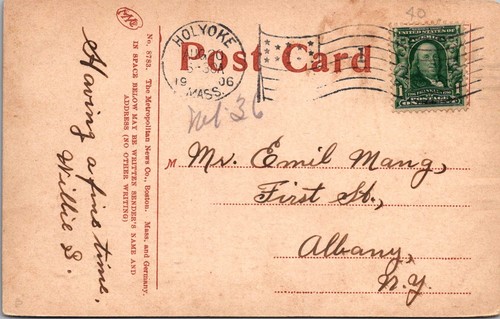 Post Card
HOLYOKE
19 06
MASS.
UNITED STATES OF
1
FRANKLIN
POSTAGE
M
Mr. Emil Mang,
First St.,
Albany,
N.Y.
Having a fine time,
Willie S.
No. 8783. The Metropolitan News Co., Boston. Mass. and Germany.
IN SPACE BELOW MAY BE WRITTEN SENDER'S NAME AND
ADDRESS (NO OTHER WRITING)